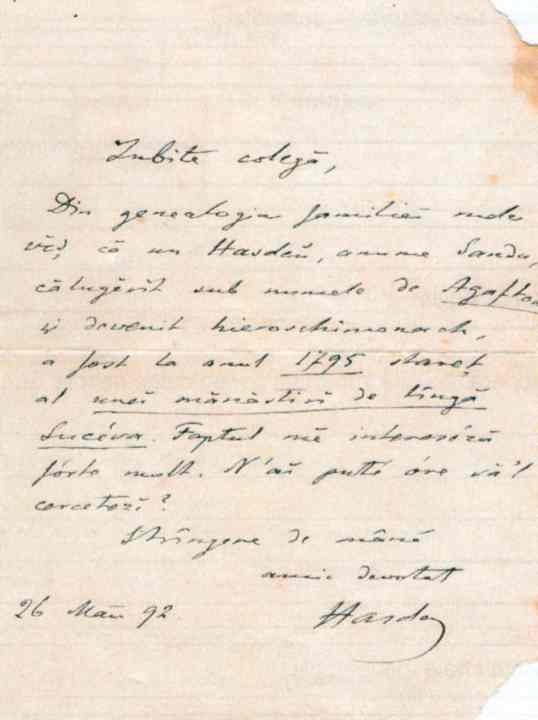 Iubite colegă,
Din genealogia familieĭ mele
vĕḑ, că un Hasdeŭ, anume Sandu,
călugărit sub numele de Agafton
și devenit hieroschimonach,
a fost la anul 1795 stareț
al uneĭ mănăstirĭ de lîngă
Sucéva. Faptul mĕ intereséză
fórte mult. N'aĭ puté óre să'l
cercetezĭ?
Strîngere de mână
amic devotat
26 Maiu 92. Hasdeu